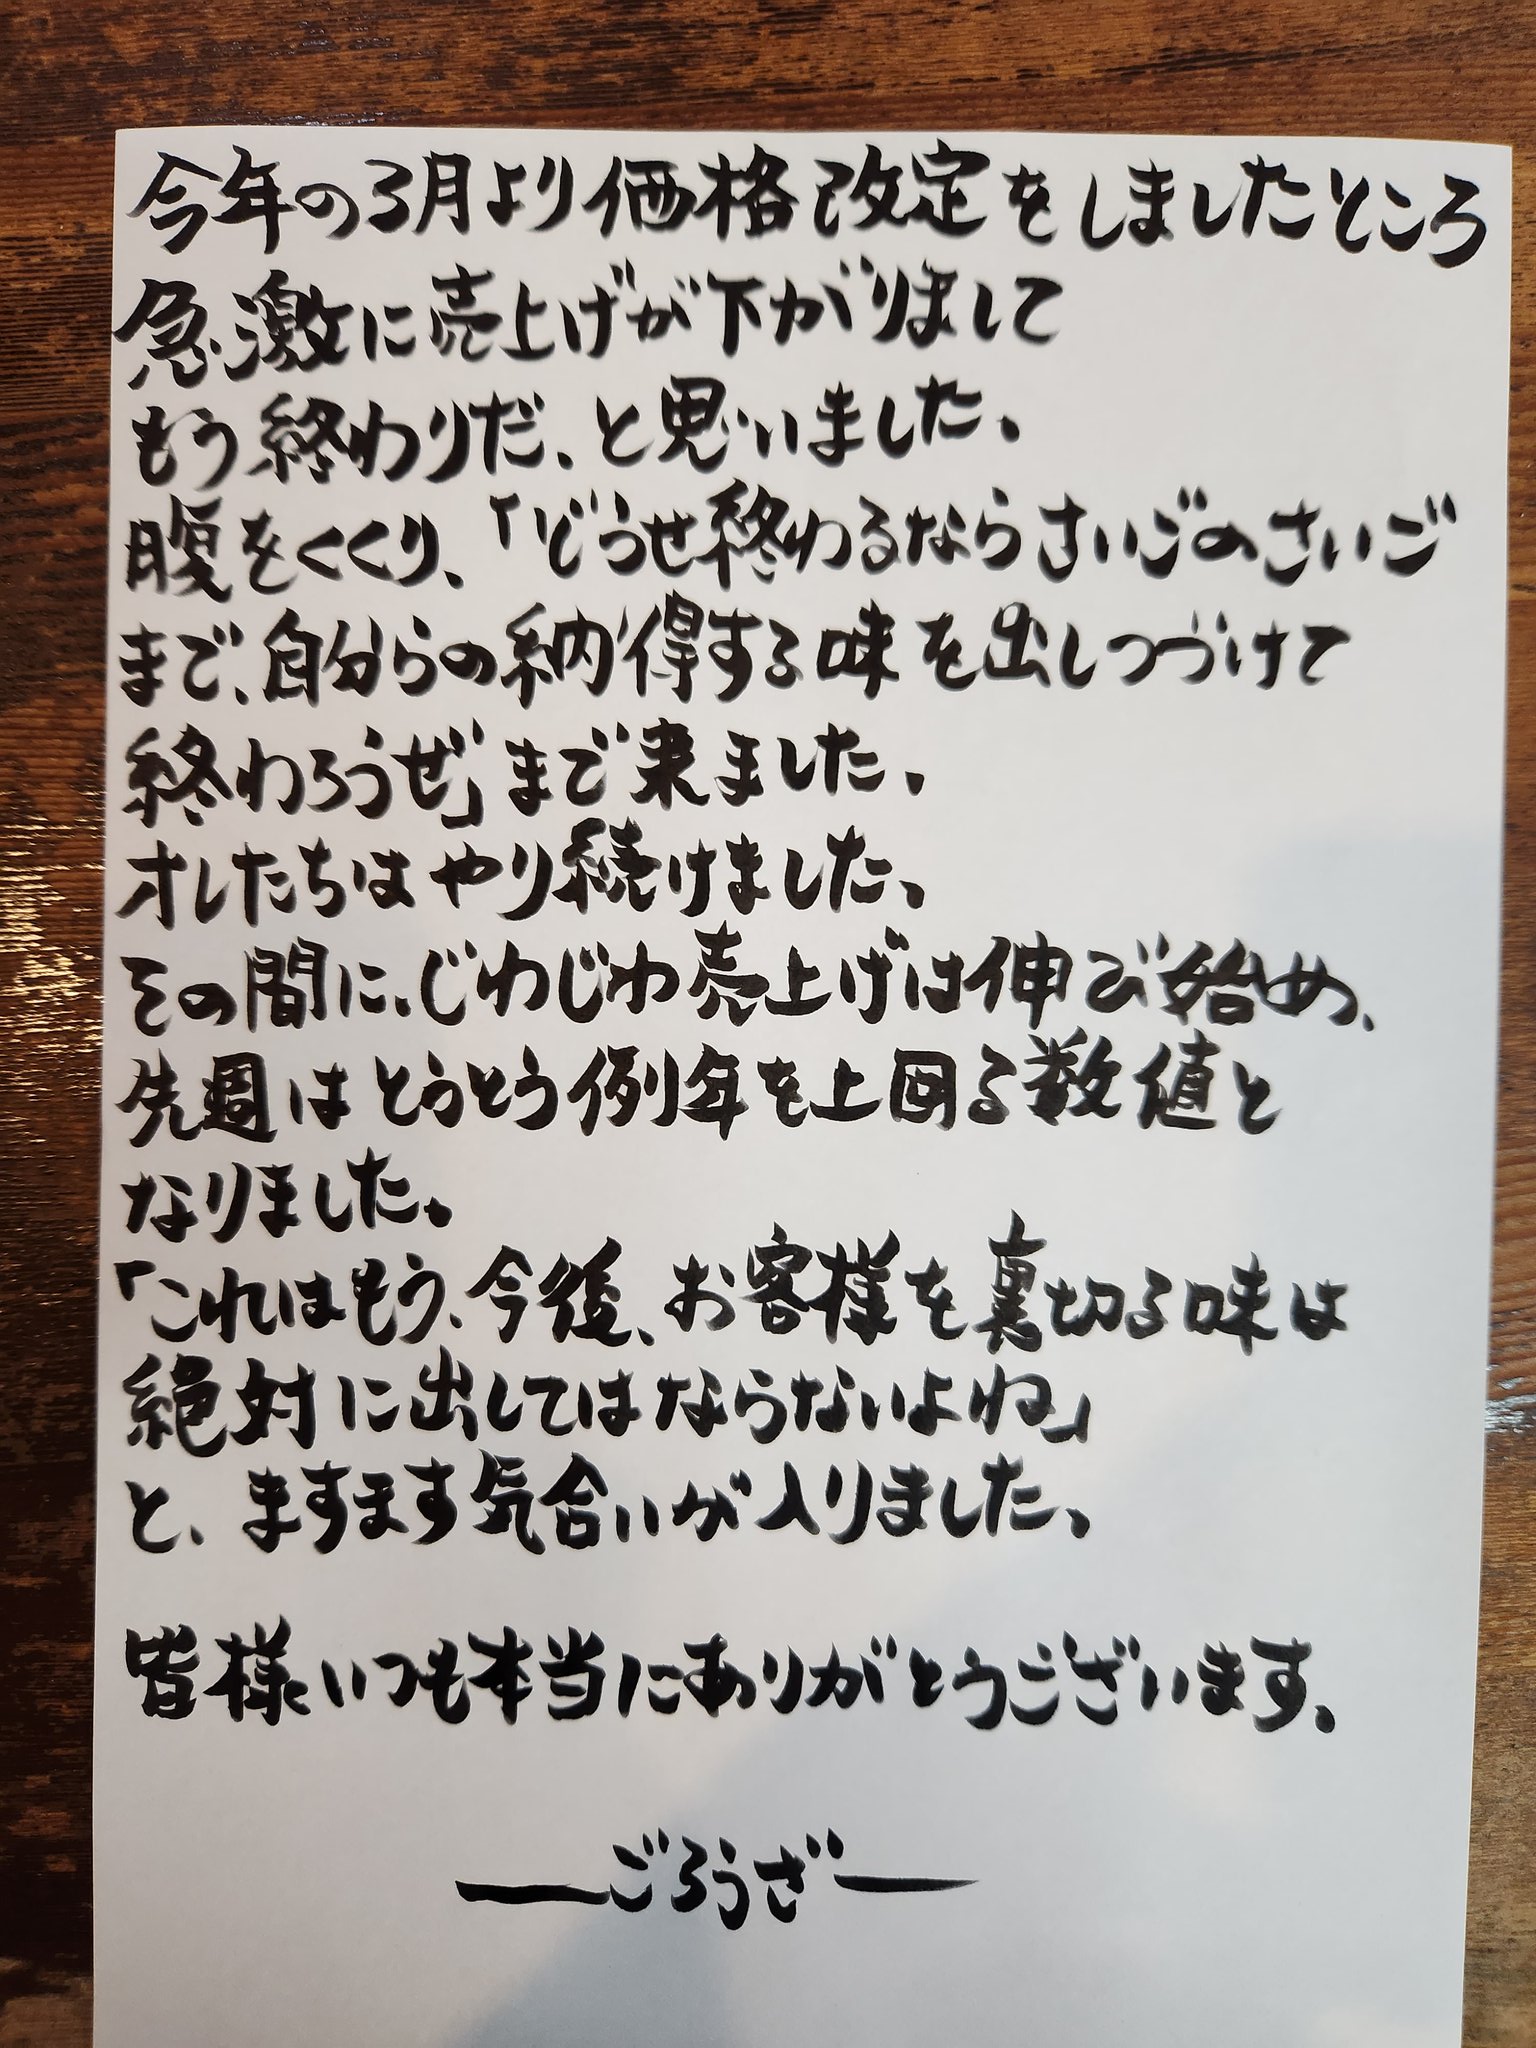 今年の3月より価格改定をしましたところ
急激に売上げが下がりまして
もう終わりだ、と思いました。
腹をくくり、「どうせ終わるならさいごのさいご
まで、自分らの納得する味を出しつづけて
終わろうぜ」まで来ました。
オレたちはやり続けました。
その間に、じわじわ売上げは伸び始め、
先週はとうとう例年を上回る数値と
なりました。
「これはもう、今後、お客様を裏切る味は
絶対に出してはならないよね」
と、ますます気合いが入りました。
皆様いつも本当にありがとうございます。
―ごろうざ―